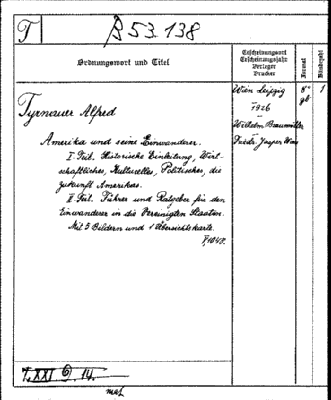 T
B 53.138
Ordnungswort und Titel
Erscheinungsort
Erscheinungsjahr
Verleger
Drucker
Format
Bändezahl
Tyrnauer Alfred
Amerika und seine Einwanderer.
I. Teil. Historische Einleitung, Wirt-
schaftliches, Kulturelles, Politisches, die
Zukunft Amerikas.
II. Teil. Führer und Ratgeber für den
Einwanderer in die Vereinigten Staaten.
Mit 5 Bildern und 1 Übersichtskarte.
Wien Leipzig
1926
Wilhelm Braumüller
Friedr. Jasper Wien
8°
gb.
1
T. XXI 14.